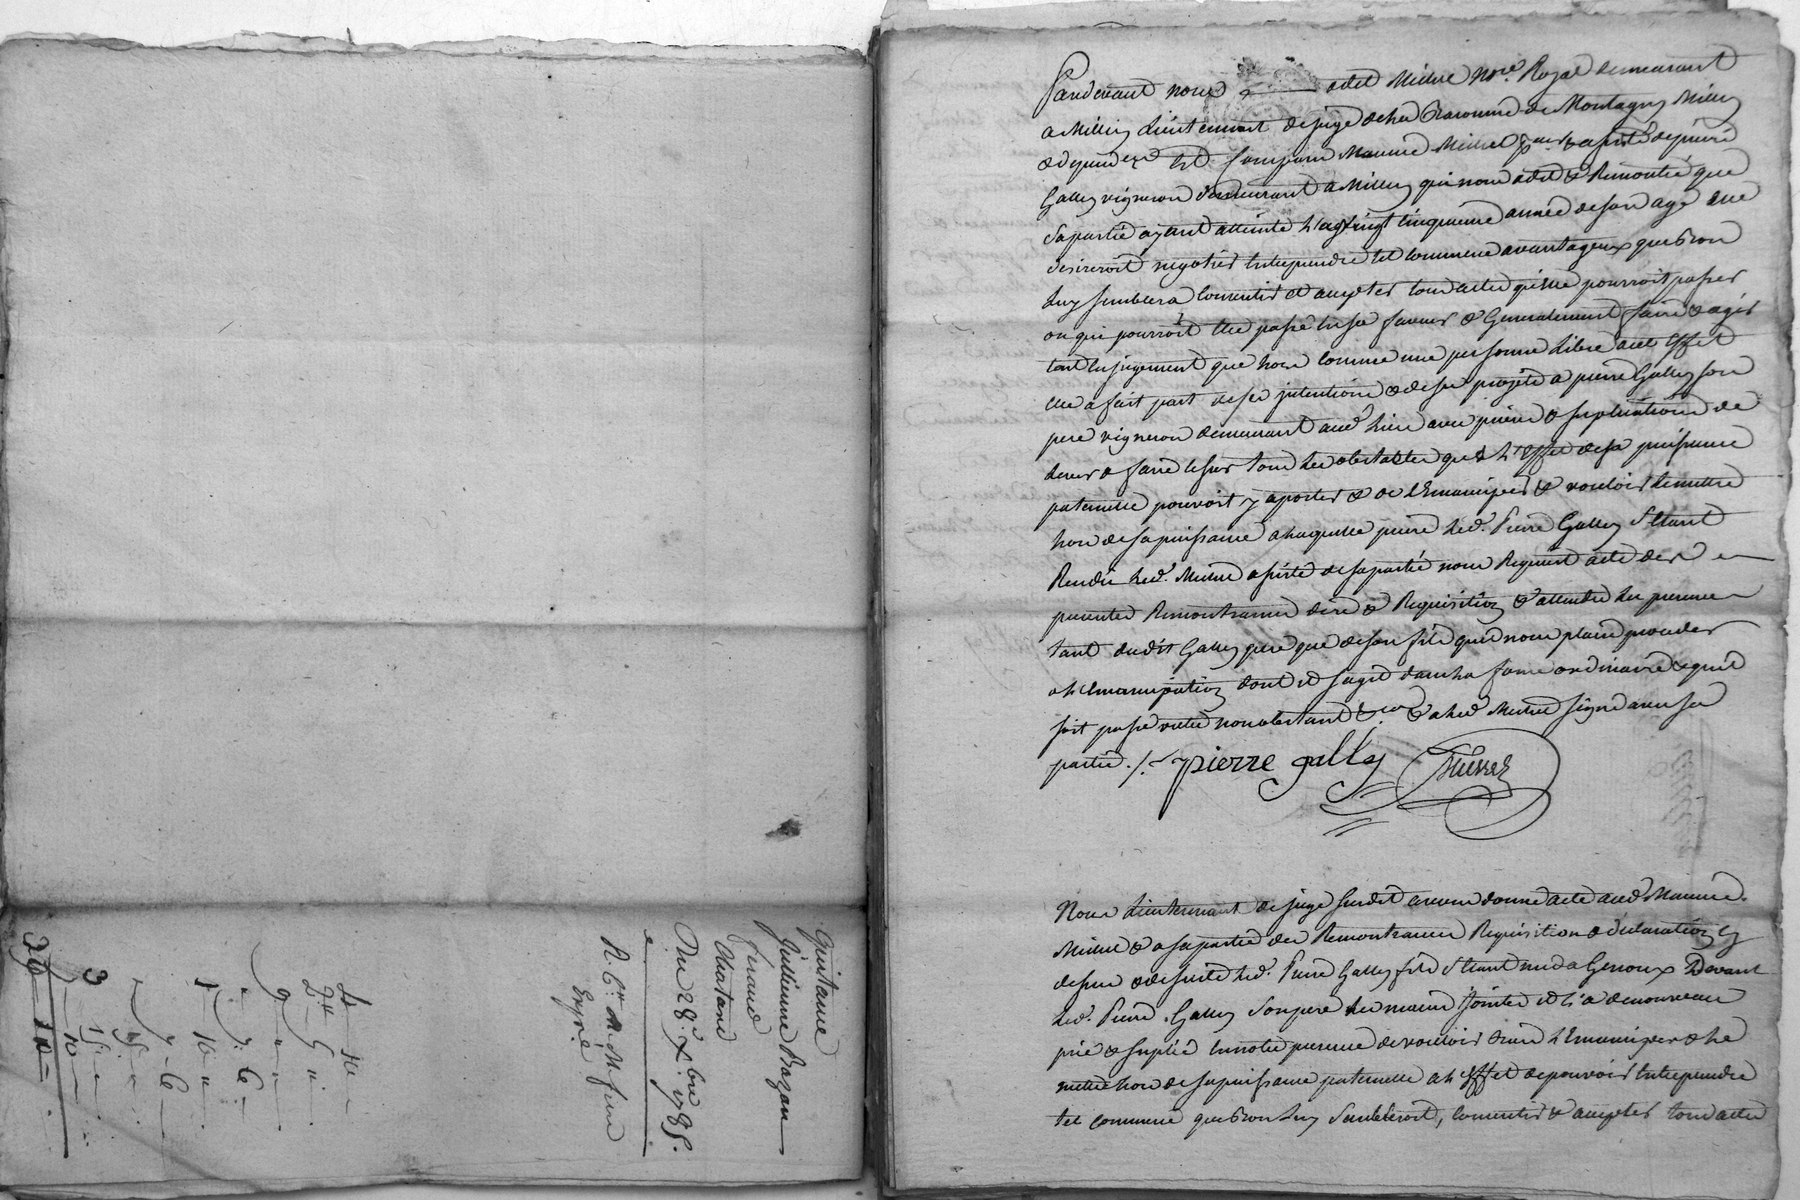 Quintance
Jullienne Bazan
Feraud
Chatane
Du 28 xbre 1785.
Pardevant nous odet Michel nore. Royal demeurant
a Millery Lieutenant de juge de la Baronnie de Montagny Millery
& dependces Est Comparu Maurice Michel assisté de pierre
Gally vigneron demeurant a Millery qui nous a dit & Remontré que
sa partie ayant atteinte la vingt cinquieme année de son age Elle
desireroit negotier Entreprendre tel commerce avantageux que bon
luy semblera Consentir et accepter tous actes quelle pourroit passer
ou qui pourroit Etre passé en sa faveur & Generalement faire & agir
tant en jugement que hors comme une personne Libre a cet Effet
Elle a fait part de ses jntentions & de ses projets a pierre Gally son
pere vigneron demeurant aud. Lieu avec priere & suplications de
lever & faire Cesser tous les obstacles que L'Effet de sa puissance
paternelle pouvoit y aporter & de L'Emanciper & vouloir le mettre
hors de sa puissance a laquelle priere led. Pierre Gally S'Etant
Rendu led. Michel assisté de sa partie nous Requiert acte de ses
presentes Remontrances dire & Requisition & attendu les presences
tant dudit Gally pere que de son fils quil nous plaise proceder
a L'Emancipation dont il s'agit dans la forme ordinaire & quil
soit passé outre nonobstant &ca. & a led. Michel signé avec sa
partie ./. pierre gally Michel
Nous Lieutenant de juge susdit avons donné acte aud. Maurice
Michel & a sa partie des Remontrances Requisition & declaration cy
dessus & de suite led. Pierre Gally fils S'Etant mis a Genoux Devant
led. Pierre Gally son pere les mains jointes et l'a de nouveau
prié & suplié En notre presence de vouloir bien L'Emanciper & le
mettre hors de sa puissance paternelle a L'effet de pouvoir Entreprendre
tel commerce que bon luy Sembleroit, Consentir & accepter tous actes